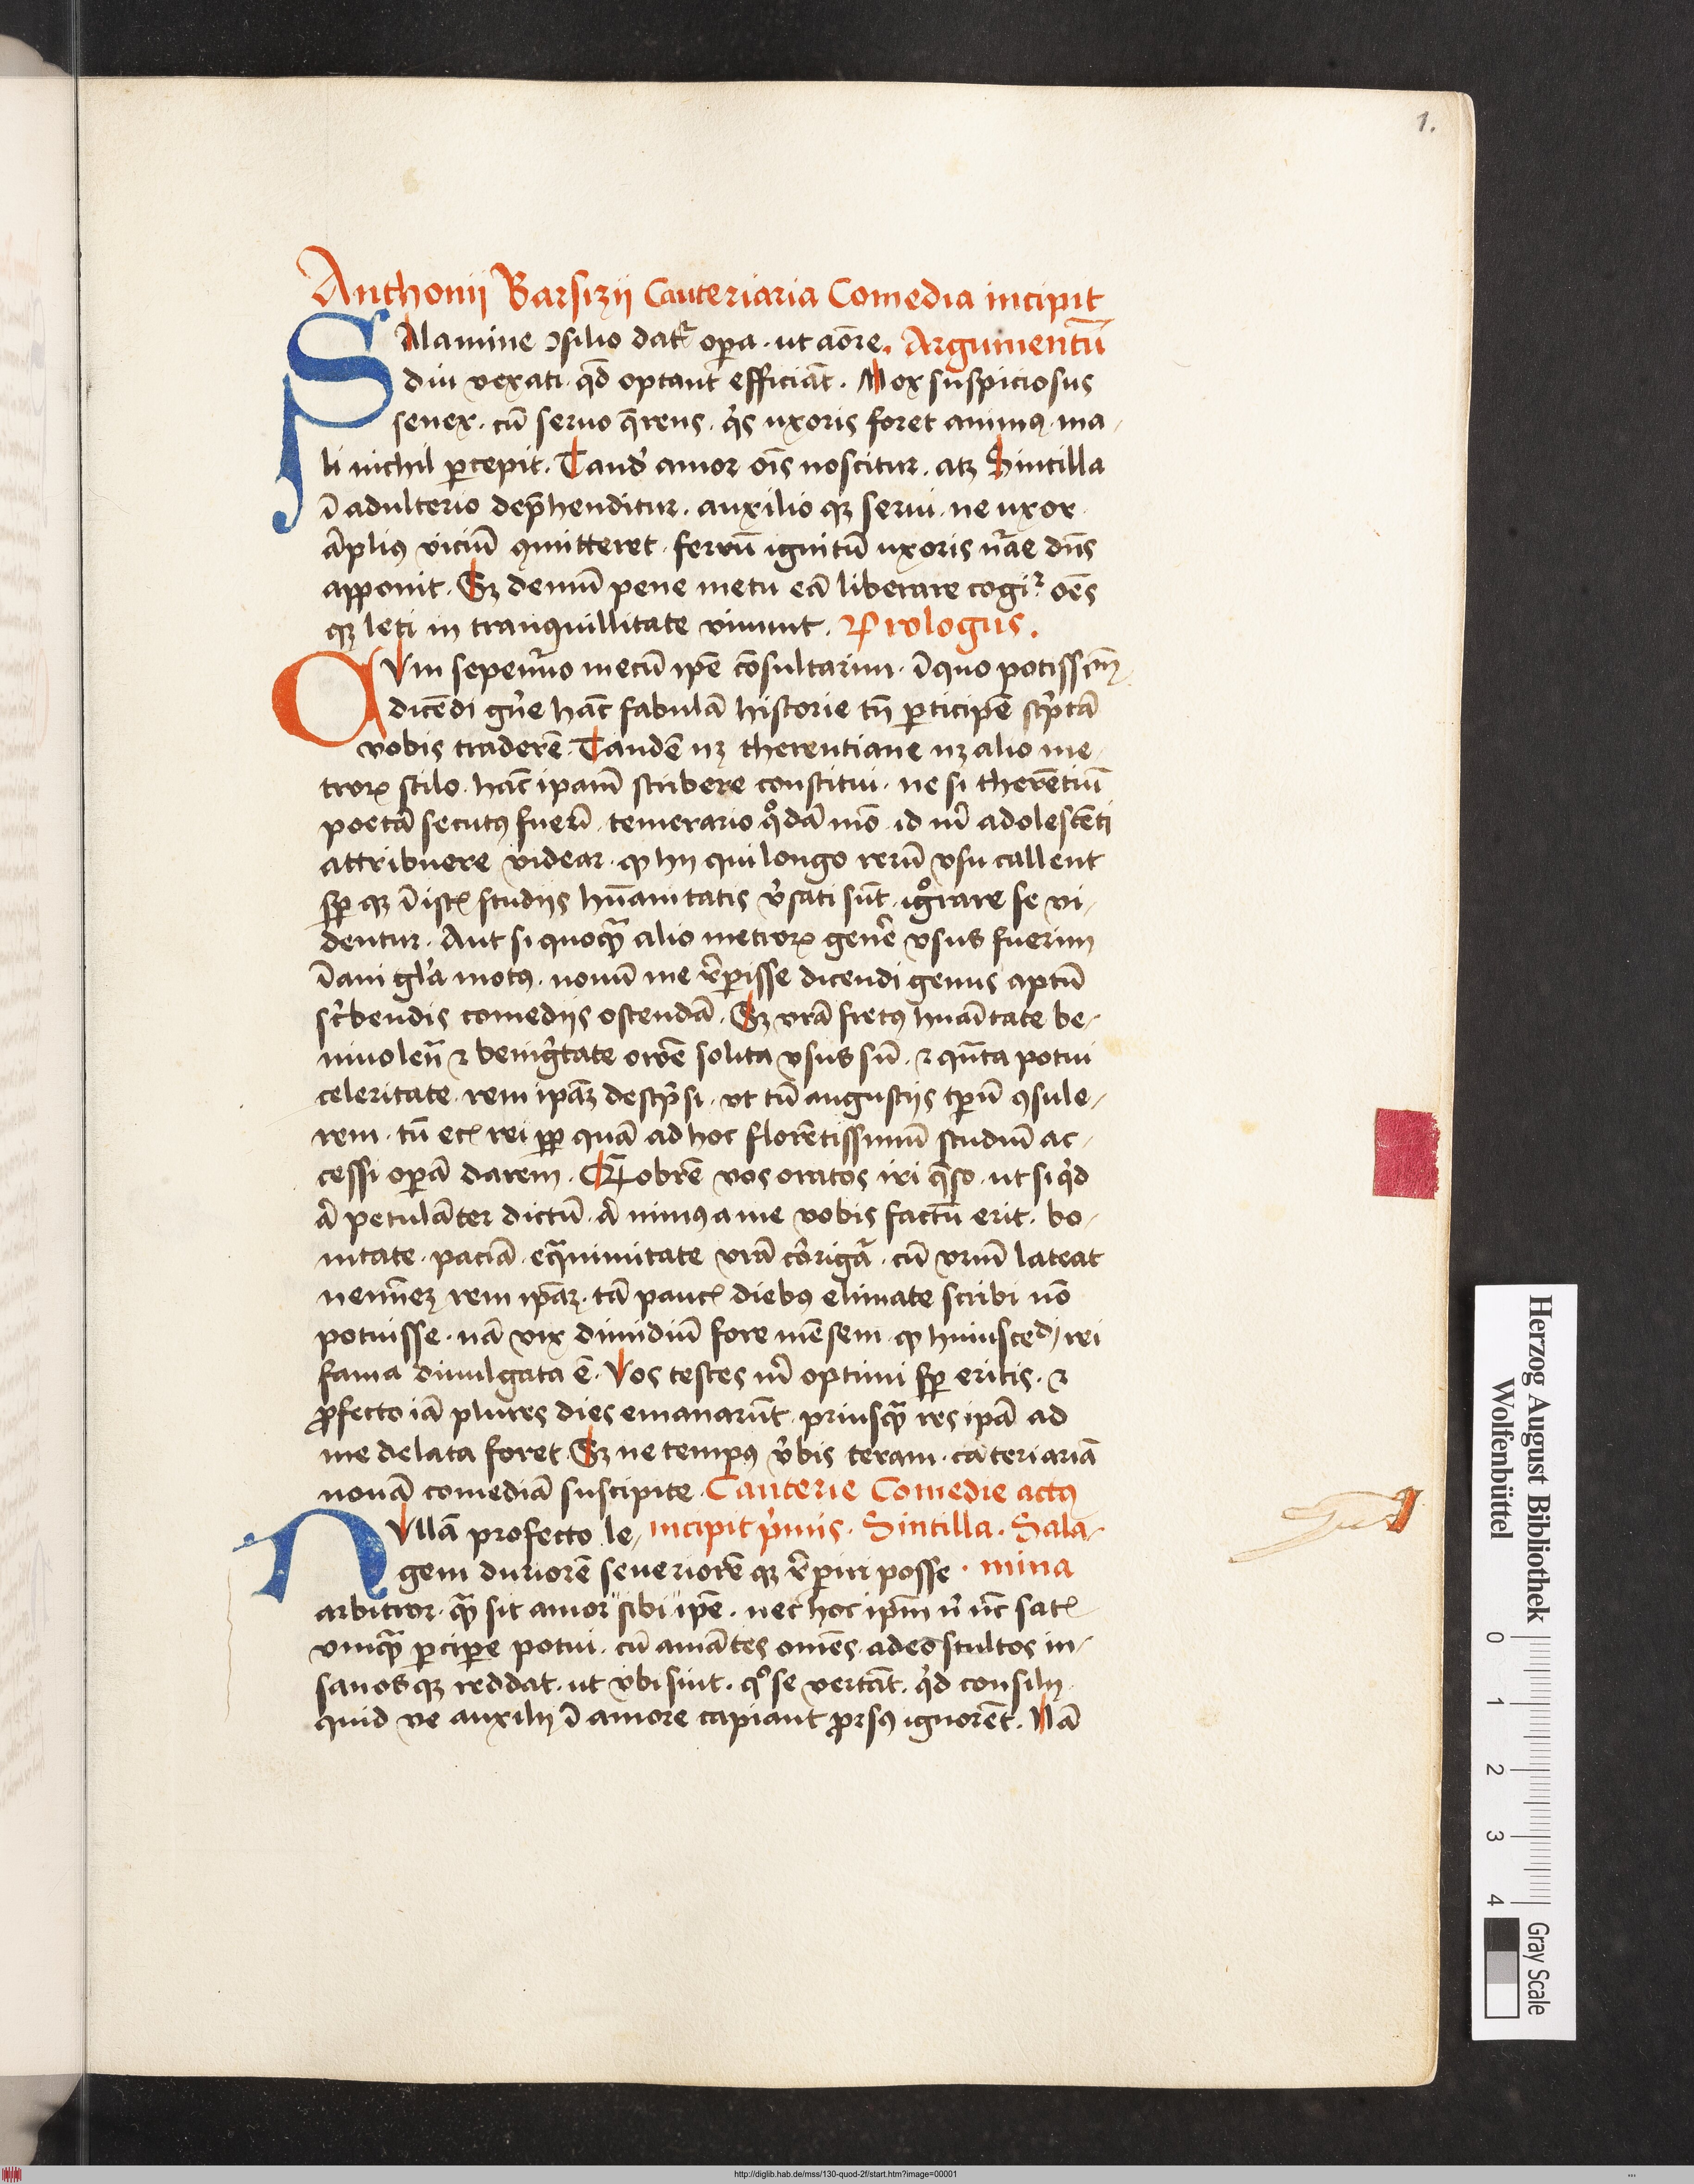 1.
Anthonij Barsizij Cauteriaria Comedia incipit
SAlamine ↄsilio dat̄ᷣ oꝑa · ut aōre. Argumentū
diu vexati · qd̄ optant efficiāt. Mox suspiciosus
senex · cū seruo q̄rens · qͥs uxoris foret animꝰ · ma-
li nichil ꝑcepit. Tand̾ amor oīs noscitur · atqꝫ Sintilla
ī adulterio dep̄henditur · auxilio qꝫ serui · ne uxor
āplius viciū ꝯmitteret · ferrū ignitū uxoris nr̄ae dn̄s
apponit. Sꝫ demū pene metu eā liberare cogiᷣ oēs
qꝫ leti in tranquillitate viuunt. Prologus.
CVm sepen̾o mecū ip̄e cōsultarim · ī quo potissimū
dicēdi gn̾e hāc fabulā historie tn̄ ꝑticipē scp̄tā
vobis traderē. Tandē nꝫ therentiane nꝫ alio me-
troꝝ stilo hāc ipam̄ scribere constitui · ne si therētiū
poetā secutꝰ fuerī · temerario qͦdā mō · id m̄ adolescēti
attribuere videar · ꝙ hij qui longo rerū vsu callent
sꝑ qꝫ ī istꝭ studijs hūanitatis v̾sati sūt · igͦrare se vi-
dentur. Aut si quoqᷓ alio metroꝝ gene᷑ vsus fuerim
īani gl̾a motꝰ · nouū me re᷑ꝑisse dicendi genus aptū
scͥbendis comedijs ostendā. Sꝫ vrā fretꝰ huāitate be-
niuolen̄ ⁊ benigͥtate oro᷑e solita vsus sū · ⁊ qn̄ta potui
celeritate · rem ipāꝫ descp̄si · vt tū angustijs tꝑū ꝯsule-
rem · tū ecꝭ rei ꝓꝑ quā ad hoc florētissimū studiū ac-
cessi oꝑā darem. Qᷓobrē vos oratos iri q̄so · ut si qͥd
a᷑ petulāter dictū · a᷑ nimꝰ a me vobis factū erit · bo-
nitate · paciā · eqᷓnimitate vrā corrigāᷣ · cū vrūm lateat
neminēꝫ rem ip̄aꝫ · tā paucꝭ diebꝰ elimate scribi nō
potuisse · nā vix dimidiū fore mēsem · ꝙ huiuscedj rei
fama diuulgata ē. Vos testes m̄ optimi sꝑ eritis · ⁊
ꝓfecto iā plures dies emanarūt · priusqᷓ res ipā ad
me delata foret. Sꝫ ne tempꝰ v̾bis teram · cāteriariā
nouā comediā suscipite. Cauterie Comedie actꝰ
NVllā profecto le- incipit pͥmus · Sintilla · Sala-
gem duriorē seueriorē qꝫ re᷑ꝑiri posse · mina
arbitror · qᷓ sit amor sibi ip̄e · nec hoc ipm̄ n̾ nc̄ satꝭ
vmqᷓ ꝑciꝑe potui · cū amātes omēs adeo stultos in-
sanos qꝫ reddat · ut vbi sint · qͦ se vertāt · qͥd consilij
quid ve auxilij ī amore capiant ꝓrsꝰ ignorēt. Nā
Herzog August Bibliothek
Wolfenbüttel
0 1 2 3 4
Gray Scale
http://diglib.hab.de/mss/130-quod-2f/start.htm?image=00001